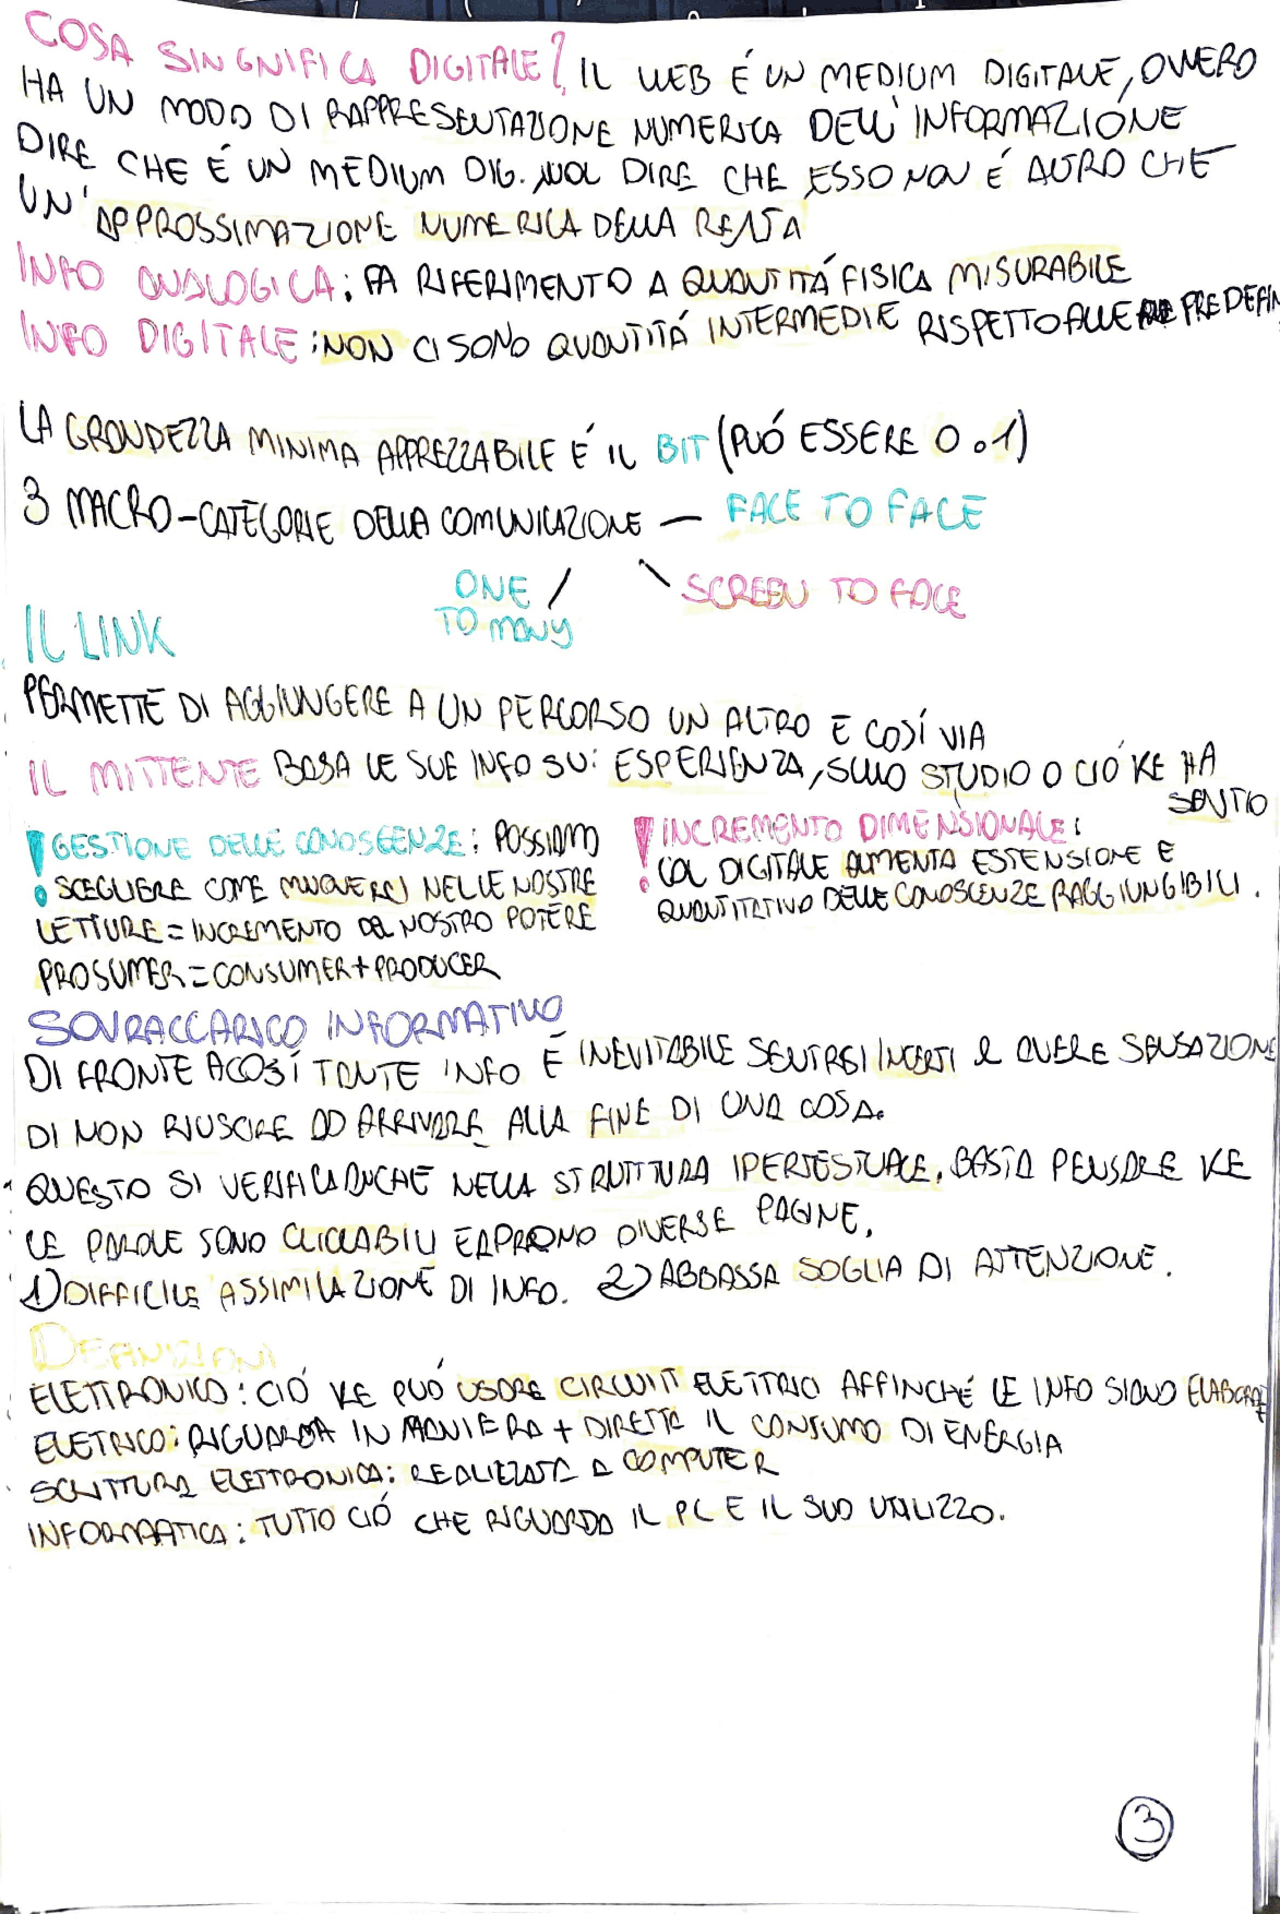 COSA SINGNIFICA DIGITALE? IL WEB É UN MEDIUM DIGITALE, OVVERO
HA UN MODO DI RAPPRESENTAZIONE NUMERICA DELL'INFORMAZIONE
DIRE CHE É UN MEDIUM DIG. VUOL DIRE CHE ESSO NON É ALTRO CHE
UN'APPROSSIMAZIONE NUMERICA DELLA REALTA
INFO ANALOGICA: FA RIFERIMENTO A QUANTITÁ FISICA MISURABILE
INFO DIGITALE: NON CI SONO QUANTITÁ INTERMEDIE RISPETTO ALLE PREDEFIN
LA GRANDEZZA MINIMA APPREZZABILE É IL BIT (PUÓ ESSERE 0 o 1)
3 MACRO-CATEGORIE DELLA COMUNICAZIONE — FACE TO FACE
ONE / \ SCREEN TO FACE
TO MANY
IL LINK
PERMETTE DI AGGIUNGERE A UN PERCORSO UN ALTRO E COSÍ VIA
IL MITTENTE BASA LE SUE INFO SU: ESPERIENZA, SULLO STUDIO O CIÓ KE HA
SENTIO
! GESTIONE DELLE CONOSCENZE: POSSIAMO
SCEGLIERE COME MUOVERCI NELLE NOSTRE
LETTURE = INCREMENTO DEL NOSTRO POTERE
PROSUMER = CONSUMER + PRODUCER
! INCREMENTO DIMENSIONALE:
COL DIGITALE AUMENTA ESTENSIONE E
QUANTITATIVO DELLE CONOSCENZE RAGGIUNGIBILI.
SOVRACCARICO INFORMATIVO
DI FRONTE A COSÍ TANTE INFO É INEVITABILE SENTIRSI INCERTI E AVERE SENSAZIONE
DI NON RIUSCIRE AD ARRIVARE ALLA FINE DI UNA COSA.
QUESTO SI VERIFICA ANCHE NELLA STRUTTURA IPERTESTUALE, BASTA PENSARE KE
LE PAROLE SONO CLICCABILI E APRONO DIVERSE PAGINE.
1) DIFFICILE ASSIMILAZIONE DI INFO. 2) ABBASSA SOGLIA DI ATTENZIONE.
DEFINIZIONI
ELETTRONICO: CIÓ KE PUÓ USARE CIRCUITI ELETTRICI AFFINCHÉ LE INFO SIANO ELABORATE
ELETRICO: RIGUARDA IN MANIERA + DIRETTA IL CONSUMO DI ENERGIA
SCRITTURA ELETTRONICA: REALIZZATA A COMPUTER
INFORMATICA: TUTTO CIÓ CHE RIGUARDA IL PC E IL SUO UTILIZZO.
3